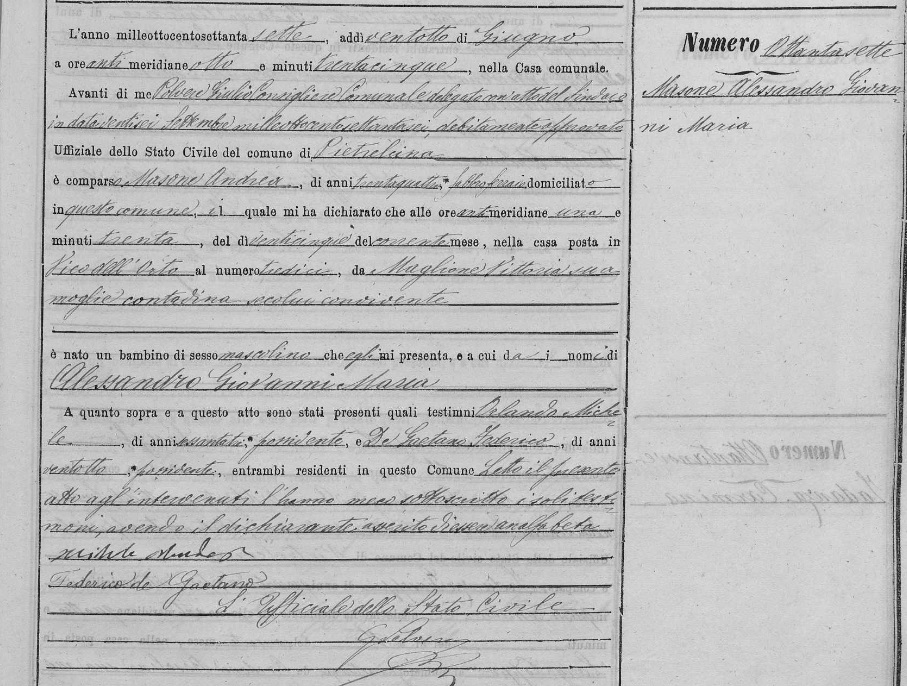 L'anno milleottocentosettanta sette, addì ventotto di Giugno
a ore anti meridiane otto e minuti trentacinque, nella Casa comunale.
Avanti di me Polvere Giulio Consigliere Comunale delegato con atto del Sindaco
in data ventisei Settembre milleottocentosettantasei, debitamente approvato
Uffiziale dello Stato Civile del comune di Pietrelcina
è comparso Masone Andrea, di anni trentaquattro, fabbro ferraio domiciliato
in questo comune, il quale mi ha dichiarato che alle ore antimeridiane una e
minuti trenta, del dì venticinque del corrente mese, nella casa posta in
Vico dell'Orto al numero tredici, da Maglione Vittoria sua
moglie contadina secolui convivente
è nato un bambino di sesso mascolino che egli mi presenta, e a cui dà i nomi di
Alessandro Giovanni Maria
A quanto sopra e a questo atto sono stati presenti quali testimni Orlando Miche-
le, di anni possidente, e De Gaetano Federico, di anni
ventotto, possidente, entrambi residenti in questo Comune Letto il presente
atto agl'intervenuti l'hanno meco sottoscritto i soli testi-
moni, avendo il dichiarante asserito di essere analfabeta
Michele Orlando
Federico de Gaetano
L'Uffiziale dello Stato Civile
G Polvere
Numero Ottantasette
Masone Alessandro Giovan-
ni Maria